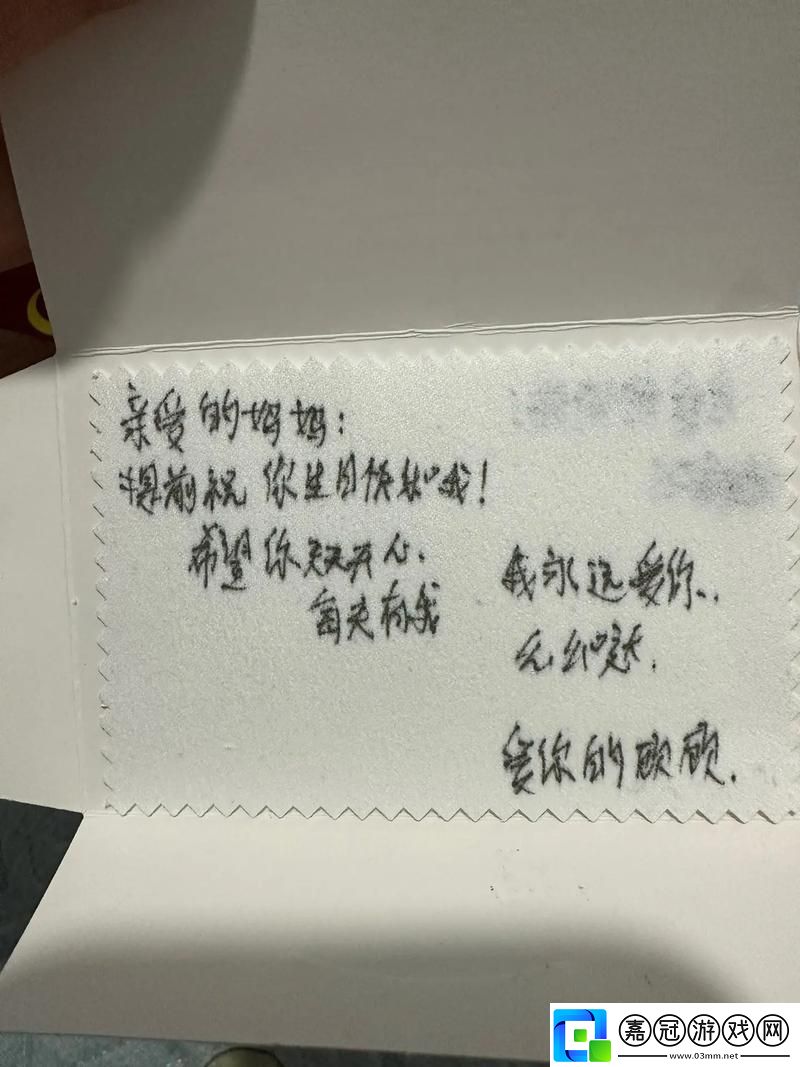 亲爱的妈妈:
提前祝你生日快乐哦!
希望你天天开心、
每天有我
我永远爱你..
无纠
爱你的顾顾.
嘉冠游戏网
www.03mm.net